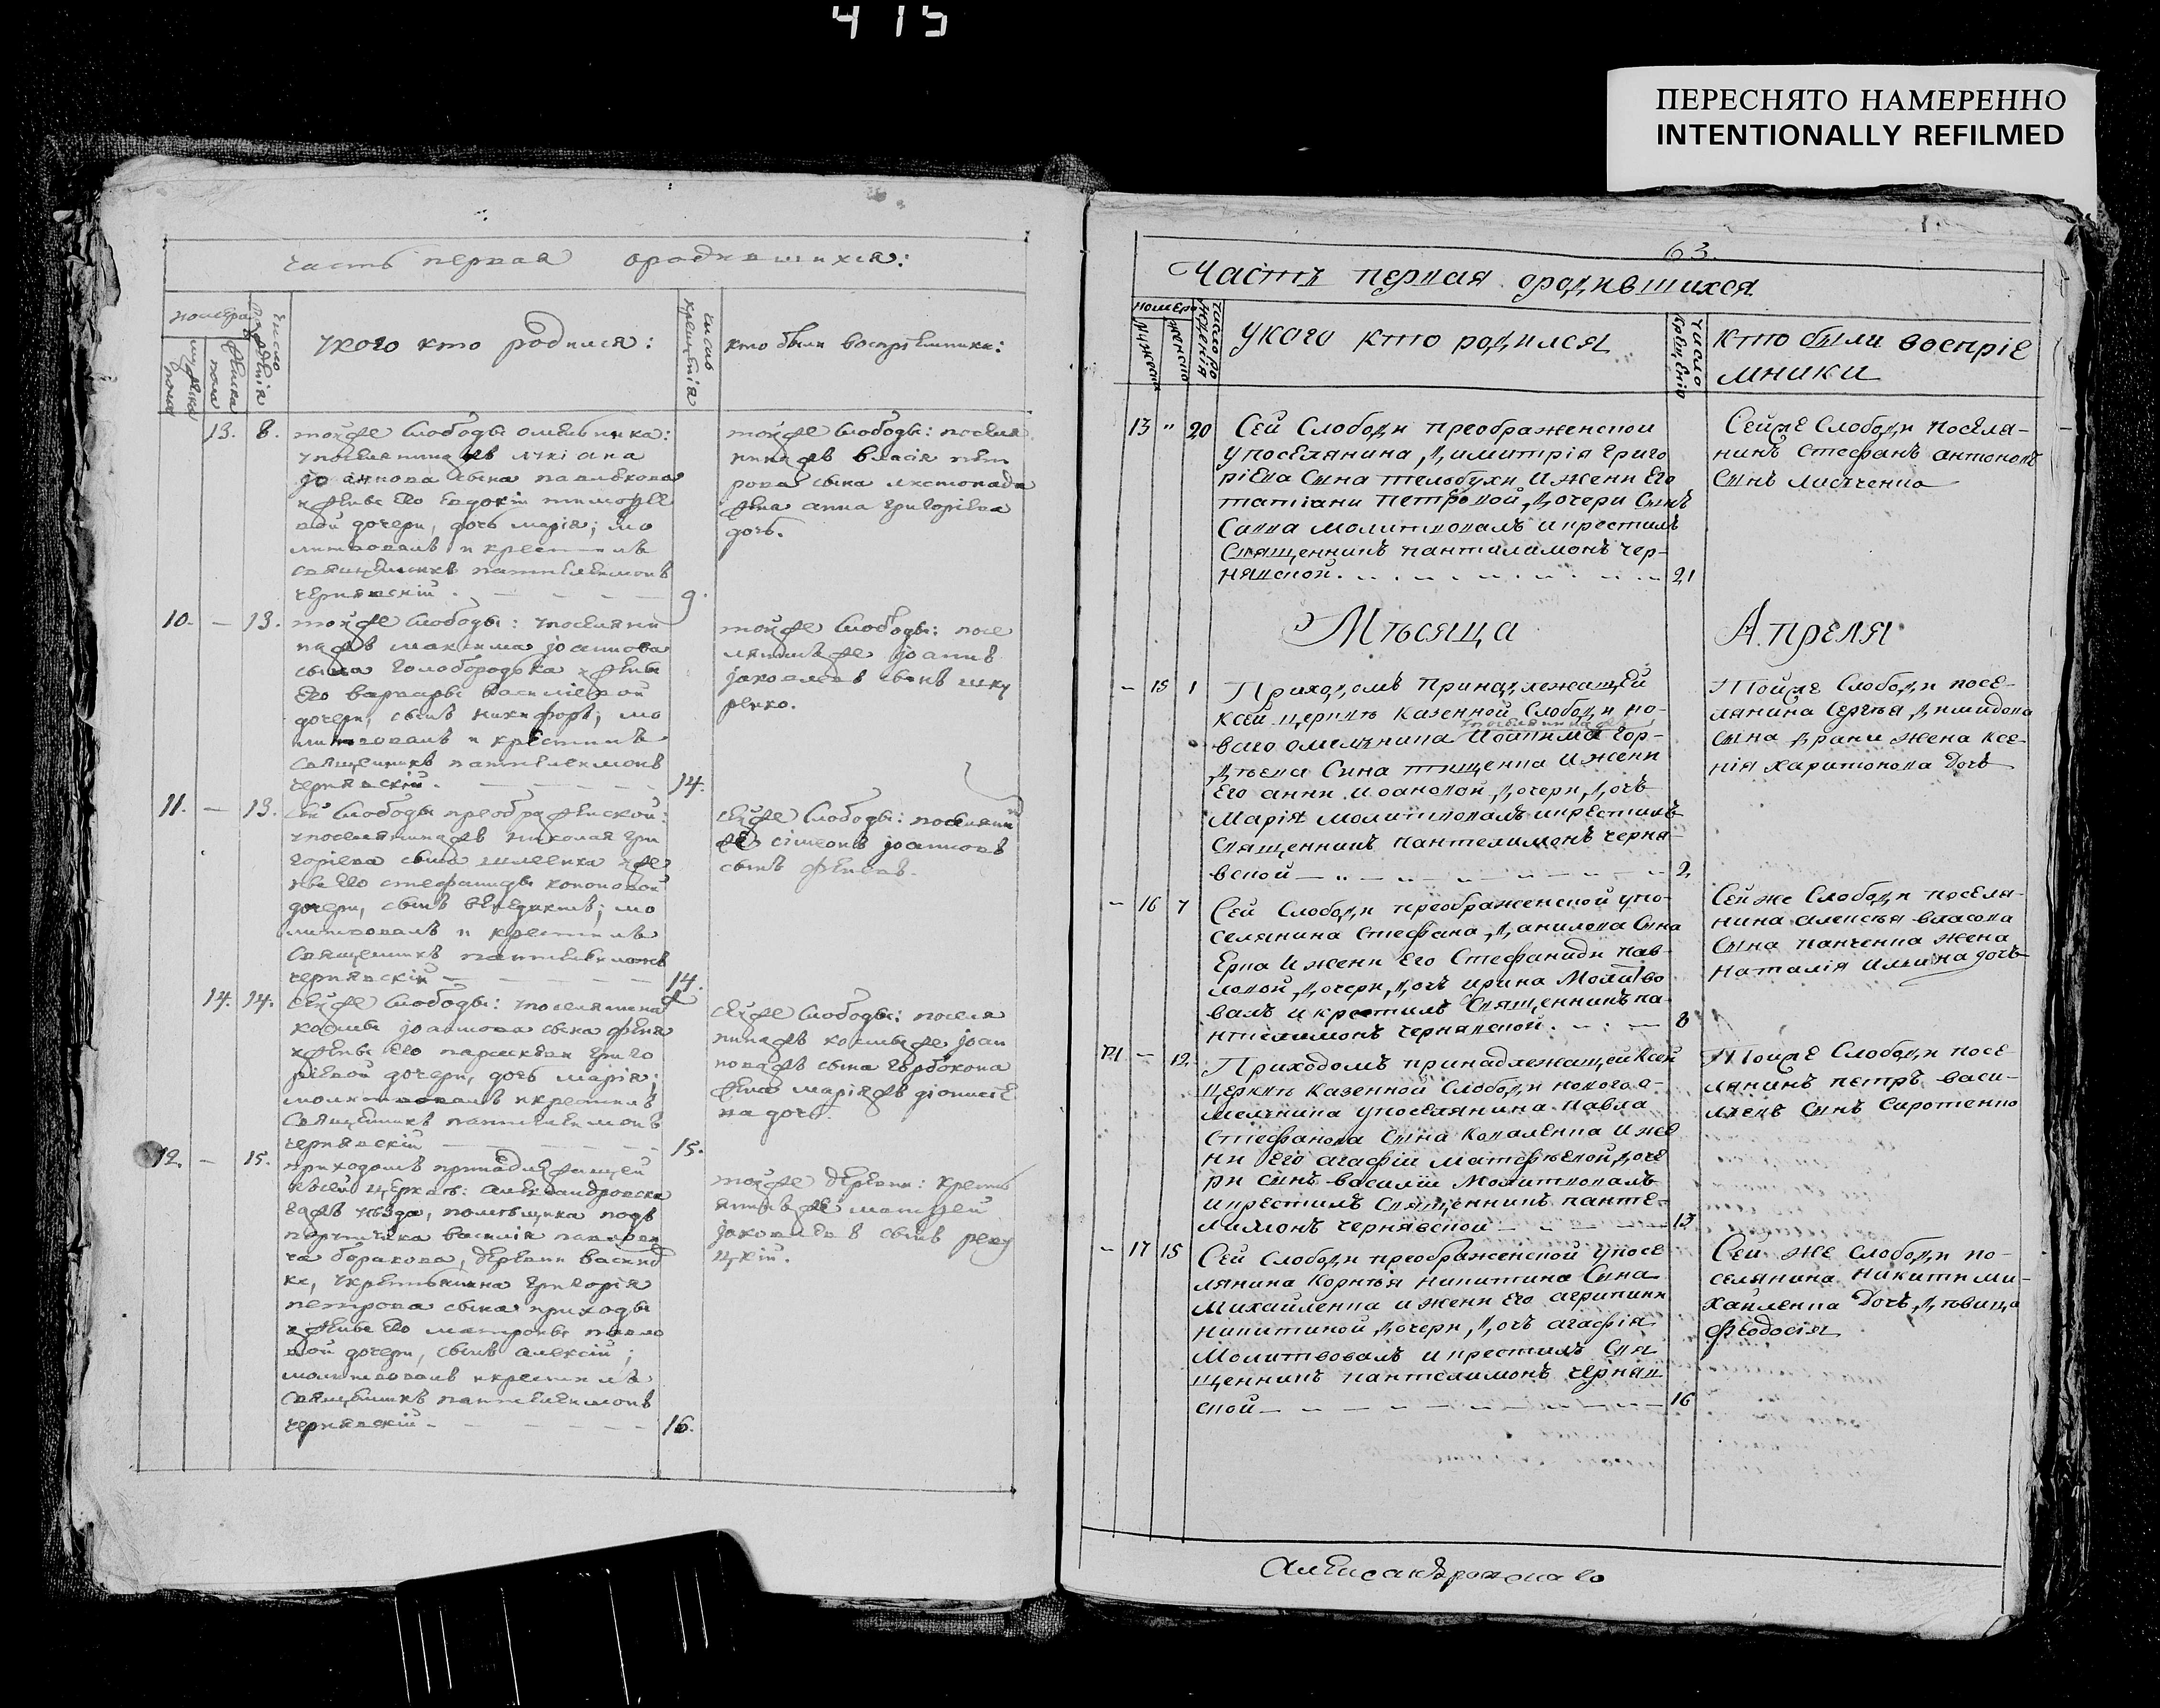 415
ПЕРЕСНЯТО НАМЕРЕННО
INTENTIONALLY REFILMED
часть первая ородившихся:
номера
мужеска пола
женска пола
число рождѣнія
укого кто родился:
число крещенія
кто были воспрiемники:
13. 8.
тойже слободы омельника:
упоселянина жъ лукіана
іоаннова сына павлюкова
ижены его евдокіи тимофее
вой дочери, дочь марія; мо
литвовалъ и крестилъ
священникъ пантелеимонъ
чернявскій. 9.
тойже слободы: поселя
нина жъ власія пет
рова сына листопада
жена анна григорієва
дочь.
10. — 13.
тойже слободы: упоселяни
на жъ максима іоаннова
сына голобородька ижены
его варвары василіевой
дочери, сынъ никифоръ; мо
литвовалъ и крестилъ
священникъ пантелеимонъ
чернявскій. 14.
тойже слободы: посе
лянинъ же іоаннъ
іаковлевъ сынъ шку
ренко.
11. — 13.
сей слободы преображенской:
упоселянина жъ николая гри
горієва сына илиже
ны его стефаниды кононовой
дочери, сынъ венедиктъ; мо
литвовалъ и крестилъ
священникъ пантелеимонъ
чернявскій — 14.
сейже слободы: поселянин
же сімеонъ іоанновъ
сынъ
14. 14.
сейже слободы: упоселянина
космы іоаннова сына
ижены его параскевы григо
ріевой дочери, дочь марія;
молитвовалъ икрестилъ
священникъ пантелеимонъ
чернявскій 15.
сейже слободы: поселя
нина жъ космы же іоан
нова жъ сына горбоконя
жена марія жъ діонисіе
ва дочь.
12. — 15.
приходомъ принадлежащей
ксей церквѣ: александровска
гожъ уѣзда, помѣщика подъ
поручика василія павлови
ча баракова, деревни васильев
ки, укрестьянина григорія
петрова сына приходы
ижены его матроны павло
вой дочери, сынъ алексій;
молитвовалъ икрестилъ
священникъ пантелеимонъ
чернявскій — 16.
тойже деревни: кресть
янинъ же матфей
іаковлевъ сынъ реву
цкій.
63.
Часть первая ородившихся
номера
мужеска
женско
число рожденія
укого кто родился
число крещенію
кто были воспріе
мники
13 " 20
Сей Слободи преображенской
упоселянина Димитрія Григо
ріева Сына телобухи Ижени Его
татіани петровой Дочери Сынъ
Савва молитвовалъ икрестилъ
Священникъ панталимонъ чер-
нявской. 21
Сейже Слободи поселя-
нинъ Стефанъ антоновъ
Сынъ лисиченко
Мѣсяца Апреля
— 15 1
Приходомъ принадлежащей
ксей церкивѣ казенной Слободи но-
упоселянина же
ваго омельника Иоакима Гор-
дѣева Сына тищенка Ижени
Его анни Иоановой Дочери Дочъ
Марія молитвовалъ икрестилъ
Священникъ пантелимонъ черня
вской — 2
Тойже Слободи посе-
лянина Сергѣя Димидова
Сына драни жена ксе-
нія харитонова Дочь
— 16 7
Сей Слободи преображенской упо-
селянина Стефана Данилова Сына
Ерка Ижени Его Стефаниди пав-
ловой Дочери Дочъ ирина Молитво
валъ икрестилъ Священникъ па-
нтелимонъ чернявской. 8
Сейже Слободи поселя-
нина алексѣя власова
Сына панченка жена
наталія илѣина дочъ
14 — 12
Приходомъ принадлежащей ксей
церквѣ казенной Слободи новогоо-
мелника упоселянина павла
Стефанова Сына коваленка Иже
ни Его агафіи матфѣевой доче
ри синъ василій Молитвовалъ
икрестилъ Священникъ панте-
лимонъ чернявской — 13
Тойже Слободи посе-
лянинъ петръ васи-
лѣевъ Сынъ Сиротенко
— 17 15
Сей Слободи преображенской упосе
лянина корнѣя никитина Сына
михайленка иженн Его агрипини
никитиной дочери, Дочъ агафія
Молитвовалъ икрестилъ Свя
щенникъ пантелимонъ черняв
ской — 16
Сей же Слободи по-
селянина никити ми-
хайленка Дочь, Дѣвица
феодосія
Александровскаго